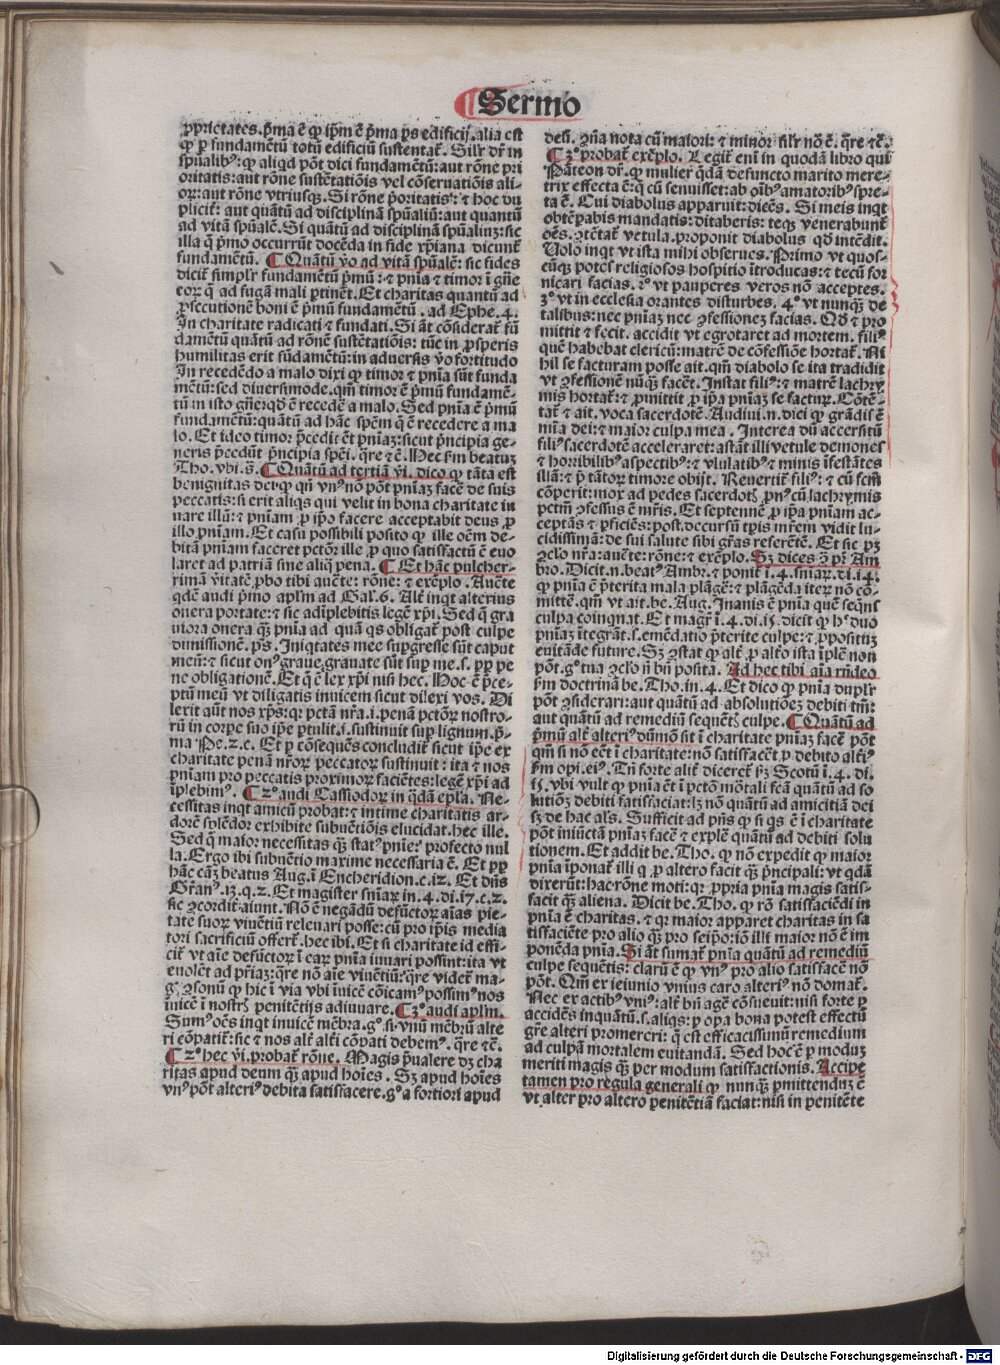 Sermo
ꝓprietates.p̄ma ē ꝙ ip̄m ē p̄ma ꝑs edificij.alia est
ꝙ ꝑ fundamētū totū edificiū sustentat̄. Silr̄ dr̄ in
sp̄ualibꝰ: ꝙ aliqd pōt dici fundamētū: aut rōne pri
oritatis: aut rōne sustētatiōis vel cōseruatiōis ali-
oꝝ: aut rōne vtriusqꝫ. Si rōne p̄oritatis: ⁊ hoc du
plicit̄: aut quātū ad disciplinā spūaliū: aut quantū
ad vitā spūalē. Si quātū ad disciplinā spūaliuꝫ: sic
illa q̄ p̄mo occurrūt docēda in fide xp̄iana dicunt̄
fundamētū. ¶ Quātū v̄o ad vitā spūalē: sic fides
dicit̄ simplr̄ fundamētū p̄mū: ⁊ pn̄ia ⁊ timor ī gn̄e
eoꝝ q̄ ad fugā mali ptinēt. Et charitas quantū ad
ꝓsecutionē boni ē p̄mū fundamētū. ad Ephe.4.
In charitate radicati ⁊ fundati. Si āt cōsiderat̄ fū
damētū quātū ad rōnē sustētatiōis: tūc in ꝓsperis
humilitas erit fūdamētū: in aduersis v̄o fortitudo
In recedēdo a malo dixi ꝙ timor ⁊ pn̄ia sūt funda
mētū: sed diuersimode. qm̄ timor ē p̄mū fundamē-
tū in isto gn̄e: qd̄ ē recedē a malo. Sed pn̄ia ē p̄mū
fundamētū: quātū ad hāc spēm q̄ ē recedere a ma
lo. Et ideo timor p̄cedit ēt pn̄iaꝫ: sicut p̄ncipia ge-
neris p̄cedūt p̄ncipia spēi. q̄re ⁊ē. Hec sm̄ beatuꝫ
Tho. vbi.s̄. ¶ Quātū ad tertiā v̄i. dico ꝙ tāta est
benignitas dei: ꝙ qn̄ vnꝰ nō pōt pn̄iaꝫ facē de suis
peccatis: si erit aliqs qui velit in bona charitate iu
uare illū: ⁊ pn̄iam ꝑ ip̄o facere acceptabit deus ꝑ
illo pn̄iam. Et casu possibili posito ꝙ ille oēm de-
bitā pn̄iam faceret pctōꝝ ille ꝑ quo satisfactū ē euo
laret ad patriā sine aliq̄ pena. ¶ Et hāc pulcher-
rimā v̄itatē ꝓbo tibi auc̄te: rōne: ⁊ exēplo. Auc̄te
qdē audi p̄mo aplm̄ ad Gal.6. Alt̄ inqt alterius
onera portate: ⁊ sic adiplebitis legē xp̄i. Sed q̄ gra
uiora onera q̄ꝫ pn̄ia ad quā qs obligat̄ post culpe
dimissionē. ps̄. Iniqtates mee sup̄gresse sūt caput
meū: ⁊ sicut onꝰ graue grauate sūt sup me. s. ꝓp pe
ne obligationē. Et q̄ ē lex xp̄i nisi hec. Hoc ē p̄ce-
ptū meū vt diligatis inuicem sicut dilexi vos. Di
lexit aūt nos xp̄s: qꝛ pctā nr̄a. i. penā pctōꝝ nostro-
rū in corꝑe suo ip̄e ptulit. i. sustinuit sup lignum. p̄-
ma Pe.2.c. Et ꝑ cōseqūēs concludit̄ sicut ip̄e ex
charitate penā nr̄oꝝ peccatoꝝ sustinuit: ita ⁊ nos
pn̄iam pro peccatis proximoꝝ faciētes: legē xp̄i ad
īplebimꝰ. ¶ 2ꝰ audi Cassiodoꝝ in q̄dā ep̄la. Ne-
cessitas inqt amicū probat: ⁊ intime charitatis ar-
dorē splēdor exhibite subuētiōis elucidat. hec ille.
Sed q̄ maior necessitas q̄ꝫ statꝰ pn̄ie: profecto nul
la. Ergo ibi subuētio maxime necessaria ē. Et ꝓp
hāc cāꝫ beatus Aug. ī Encheridion.c.12. Et dn̄s
Gr̄anꝰ.13.q.2. Et magister sn̄iaꝝ in.4.di.17.c.2.
sic ꝯcordit̄ aiunt. Nō ē negādū defūctoꝝ aīas pie-
tate suoꝝ viuētiū releuari posse: cū pro ip̄is media
tori sacrificiū offert̄. hec ibi. Et si charitate id effi-
cit̄ vt aīe defūctoꝝ ī eaꝝ pn̄ia iuuari possint: ita vt
euolēt ad pr̄iaꝫ: q̄re nō aīe viuētiū: q̄re videt̄ ma-
gꝭ ꝯsonū ꝙ hic ī via vbi īuicē cōicamꝰ possimꝰ nos
īuicē ī nostrꝭ penitētijs adiuuare. ¶ 3ꝰ audi aplm̄.
Sumꝰ oēs inqt inuicē mēbra. gꝰ si vnū mēbrū alte
ri cōpatit̄: sic ⁊ nos alt̄ alt̄i cōpati debemꝰ. q̄re ⁊ē.
¶ 2ꝰ hec v̄i. probat̄ rōne. Magis p̄ualere dꝫ cha
ritas apud deum q̄ꝫ apud hoīes. Sꝫ apud hoīes
vnꝰ pōt alteriꝰ debita satisfacere. gꝰ a fortiori apud
deū. ꝯn̄a nota cū maiori: ⁊ minor silr̄ nō ē. q̄re ⁊ē.
¶ 3ꝰ probat̄ exēplo. Legit̄ enī in quodā libro qui
Pāteon dr̄. ꝙ mulier q̄dā defuncto marito mere-
trix effecta ē: q̄ cū senuisset: ab oībꝰ amatoribꝰ spre-
ta ē. Cui diabolus apparuit: dicēs. Si meis inqt
obtēpabis mandatis: ditaberis: teqꝫ venerabunt̄
oēs. ꝯtētat̄ vetula. proponit diabolus qd̄ intēdit.
Uolo inqt vt ista mihi obserues. Primo vt quos-
cūqꝫ potes religiosos hospitio ītroducas: ⁊ tecū for
nicari facias. 2ꝰ vt pauperes veros nō acceptes.
3ꝰ vt in ecclesia orantes disturbes. 4ꝰ vt nunqꝫ de
talibus: nec pn̄iaꝫ nec ꝯfessionēꝫ facias. Qd̄ ⁊ pro
mittit ⁊ fecit. accidit vt egrotaret ad mortem. filiꝰ
quē habebat clericū: matrē de cōfessiōe hortat̄. Ni
hil se facturam posse ait. qm̄ diabolo se ita tradidit
vt ꝯfessionē nūqꝫ facēt. Instat filiꝰ: ⁊ matrē lachry
mis hortat̄: ⁊ ꝓmittit ꝑ ip̄a pn̄iaꝫ se factuꝝ. Cōtē-
tat̄ ⁊ ait. voca sacerdotē. Audiui.n.dici ꝙ grādis ē
mīa dei: ⁊ maior culpa mea. Interea dū accersitū
filiꝰ sacerdotē acceleraret: astāt illi vetule demones
⁊ horribilibꝰ aspectibꝰ: ⁊ vlulatibꝰ ⁊ minis īfestātes
illā: ⁊ p̄ tātoꝝ timore obijt. Reuertit̄ filiꝰ: ⁊ cū sem̄
cōperit: mox ad pedes sacerdotꝭ ꝓnꝰ cū lachrymis
pctm̄ ꝯfessus ē mr̄is. Et septennē ꝑ ip̄a pn̄iam ac-
ceptās ⁊ ꝑficiēs: post decursū tp̄is mr̄em vidit lu-
cidissimā: de sui salute sibi gr̄as referētē. Et sic pꝫ
ꝯclo nr̄a: auc̄te: rōne: ⁊ exēplo. Sꝫ dices ꝯ̄ p̄: Am
bro. Dicit.n.beatꝰ Ambr. ⁊ ponit̄ ī.4.sn̄iaꝝ.di.14.
ꝙ pn̄ia ē p̄terita mala plāgē: ⁊ plāgēda iteꝝ nō cō-
mittē. qm̄ vt ait.be.Aug. Inanis ē pn̄ia quē seqn̄s
culpa coinqnat. Et magr̄ ī.4.di.15.dicit ꝙ hꝫ duo
pn̄iaꝫ ītegrāt. s. emēdatio p̄terite culpe: ⁊ ꝓpositiꝫ
euitāde future. Sꝫ ꝯstat ꝙ alt̄ ꝑ alt̄o ista īplē non
pōt. gꝰ tua ꝯclo n̄ bn̄ posita. Ad hec tibi aīa rn̄deo
sm̄ doctrinā be.Tho.in.4. Et dico ꝙ pn̄ia duplr̄
pōt ꝯsiderari: aut quātū ad absolutioēꝫ debiti tm̄:
aut quātū ad remediū sequētꝭ culpe. ¶ Quātū ad
p̄mū alt̄ alteriꝰ dūmō sit ī charitate pn̄iaꝫ facē pōt
qm̄ si nō eēt ī charitate: nō satisfacēt ꝑ debito alt̄iꝰ
sm̄ opi.eiꝰ. Tn̄ forte alit̄ diceret̄ sꝫ Scotū ī.4.di.
15. vbi vult ꝙ pn̄ia ēt ī pctō mōtali fcā quātū ad so
lutiōꝫ debiti satisfaciat: lꝫ nō quātū ad amicitiā dei
sꝫ de hac als̄. Sufficit ad pn̄s ꝙ si qs ē ī charitate
pōt iniūctā pn̄iaꝫ facē ⁊ explē quātū ad debiti solu
tionem. Et addit be.Tho. ꝙ nō expedit ꝙ maior
pn̄ia īponat̄ illi q ꝑ altero facit q̄ꝫ p̄ncipali: vt qdā
dixerūt: hac rōne moti: qꝛ ꝓpria pn̄ia magis satis-
facit q̄ꝫ aliena. Dicit be.Tho. ꝙ rō satisfaciēdi in
pn̄ia ē charitas. ⁊ qꝛ maior apparet charitas in sa
tisfaciēte pro alio q̄ꝫ pro seip̄o: iō illi maior nō ē im
ponēda pn̄ia. Si āt sumat̄ pn̄ia quātū ad remediū
culpe sequētis: clarū ē ꝙ vnꝰ pro alio satisfacē nō
pōt. Qm̄ ex ieiunio vnius caro alteriꝰ nō domat̄.
Nec ex actibꝰ vniꝰ: alt̄ bn̄ agē cōsueuit: nisi forte ꝑ
accidēs inquātū. s. aliqs: ꝑ oꝑa bona potest effectū
gr̄e alteri promereri: q̄ est efficacissimū remedium
ad culpā mortalem euitandā. Sed hoc ē ꝑ moduꝫ
meriti magis q̄ꝫ per modum satisfactionis. Accipe
tamen pro regula generali ꝙ nunqꝫ ꝑmittenduꝫ ē
vt alter pro altero penitētiā faciat: nisi in penitēte
Digitalisierung gefördert durch die Deutsche Forschungsgemeinschaft - DFG